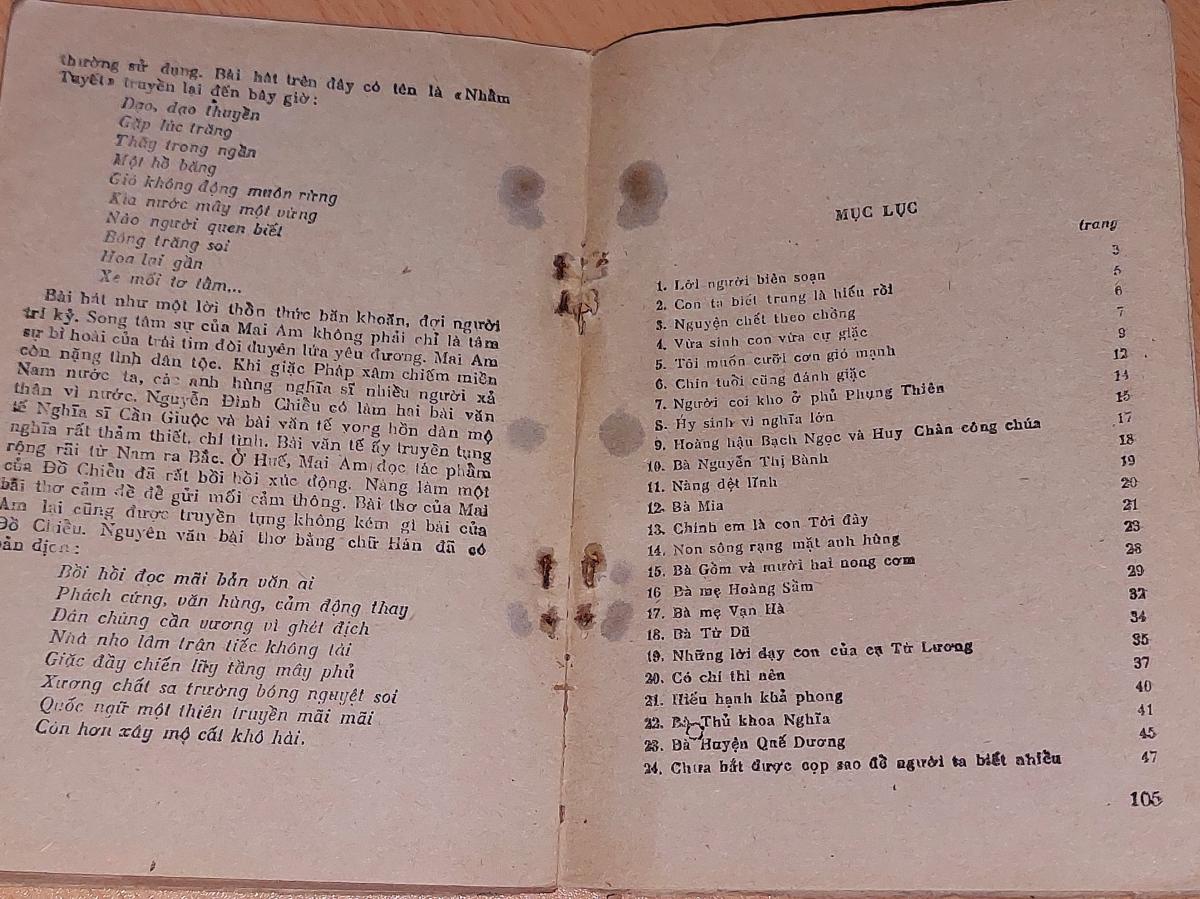 thường sử dụng. Bài hát trên đây có tên là «Nhầm
Tuyết» truyền lại đến bây giờ:
Dạo, dạo thuyền
Gặp lúc trăng
Thấy trong ngần
Một hồ băng
Gió không động muôn rừng
Kìa nước mây một vừng
Nào người quen biết
Bóng trăng soi
Hoa lại gần
Xe mối tơ tằm...
Bài hát như một lời thồn thức băn khoăn, đợi người
tri kỷ. Song tâm sự của Mai Am không phải chỉ là tâm
sự bi hoài của trái tim đòi duyên lứa yêu đương. Mai Am
còn nặng tình dân tộc. Khi giặc Pháp xâm chiếm miền
Nam nước ta, các anh hùng nghĩa sĩ nhiều người xả
thân vì nước. Nguyễn Đình Chiều có làm hai bài văn
tế Nghĩa sĩ Cần Giuộc và bài văn tế vong hồn dân mộ
nghĩa rất thảm thiết, chí tình. Bài văn tế ấy truyền tụng
rộng rãi từ Nam ra Bắc. Ở Huế, Mai Am đọc tác phẩm
của Đồ Chiều đã rất bồi hồi xúc động. Nàng làm một
bài thơ cảm đề đề gửi mối cảm thông. Bài thơ của Mai
Am lại cũng được truyền tụng không kém gì bài của
Đồ Chiều. Nguyên văn bài thơ bằng chữ Hán đã có
bản dịch:
Bồi hồi đọc mãi bản văn ai
Phách cứng, văn hùng, cảm động thay
Dân chúng cần vương vì ghét địch
Nhà nho lâm trận tiếc không tài
Giặc đầy chiến lũy tầng mây phủ
Xương chất sa trường bóng nguyệt soi
Quốc ngữ một thiên truyền mãi mãi
Còn hơn xây mộ cất khô hài.
MỤC LỤC
trang
1. Lời người biên soạn 3
2. Con ta biết trung là hiếu rồi 5
3. Nguyện chết theo chồng 6
4. Vừa sinh con vừa cự giặc 7
5. Tôi muốn cưỡi cơn gió mạnh 9
6. Chín tuổi cũng đánh giặc 12
7. Người coi kho ở phủ Phụng Thiên 14
8. Hy sinh vì nghĩa lớn 15
9. Hoàng hậu Bạch Ngọc và Huy Chân công chúa 17
10. Bà Nguyễn Thị Bành 18
11. Nàng dệt lĩnh 19
12. Bà Mia 20
13. Chính em là con Tời đây 21
14. Non sông rạng mặt anh hùng 23
15. Bà Gồm và mười hai nong cơm 28
16 Bà mẹ Hoàng Sầm 29
17. Bà mẹ Vạn Hà 32
18. Bà Từ Dũ 34
19. Những lời dạy con của cụ Từ Lương 35
20. Có chí thì nên 37
21. Hiếu hạnh khả phong 40
22. Bà Thủ khoa Nghĩa 41
23. Bà Huyện Quế Dương 45
24. Chưa bắt được cọp sao đồ người ta biết nhiều 47
105